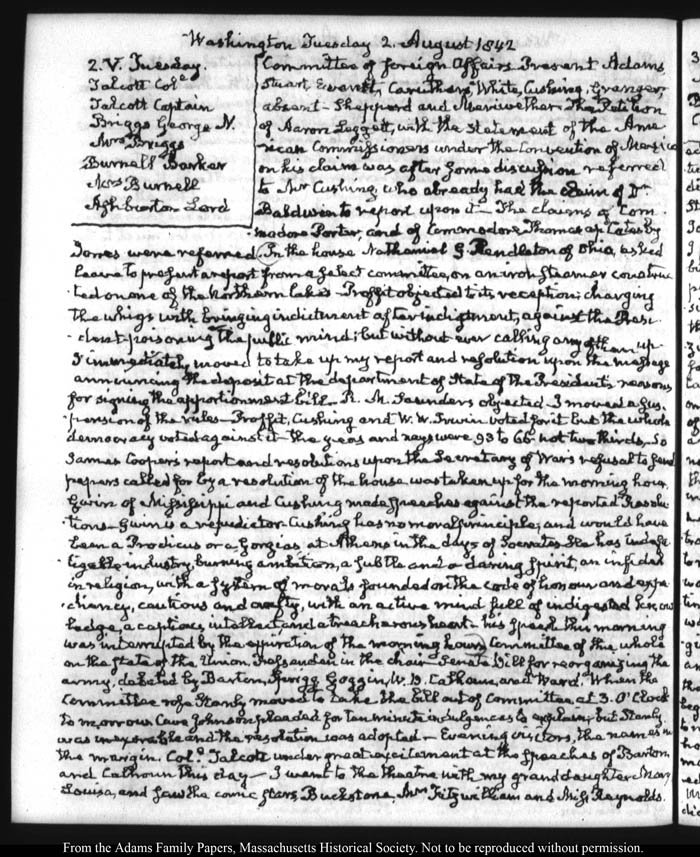 Washington Tuesday 2. August 1842
2. V. Tuesday.
Talcott Col
Talcott Captain
Briggs George N.
Mrs Briggs
Burnell Barker
Mrs Burnell
Ashburton Lord
Committee of foreign Affairs. Present Adams
Stuart, Everett, Caruthers, White, Cushing, Granger,
absent - Shepperd and Meriwether. The Petition
of Aaron Leggett, with the statement of the Ame
rican Commissioners under the Convention of Mexico
on his claim was after some discussion referred
to Mr Cushing, who already had the claim of Dr
Baldwin to report upon it - The claims of Com
modore Porter, and of Commodore Thomas ap Catesby
Jones were referred. In the house Nathaniel G Pendleton of Ohio, asked
leave to present a report from a select committee, on an iron steamer construc
ted on one of the Northern lakes - Proffit objected to its reception; charging
the whigs with bringing indictment after indictment, against the Presi
dent poisoning the public mind; but without ever calling any of them up
I immediately moved to take up my report and resolution upon the message
announcing the deposit at the department of State of the President's reasons
for signing the apportionment bill - R. M. Saunders objected I moved a sus
pension of the rules - Proffit, Cushing and W. W. Irwin voted for it but the whole
democracy voted against it - the yeas and nays were 93 to 66. not two thirds. So
James Cooper's report and resolutions upon the Secretary of War's refusal to send
papers called for by a resolution of the house was taken up for the morning hour.
Gwin of Mississippi and Cushing made speeches against the reported Resolu
tions. Gwin is a repudiator Cushing has no moral principle, and would have
been a Prodicus or a Gorgias at Athens in the days of Socrates. He has indefa
tigable industry, burning ambition, a subtle and a daring spirit, an infidel
in religion, with a system of morals founded on the code of honour and expe
diency, cautious and crafty, with an active mind full of indigested know
ledge, a captious intellect and a treacherous heart - his speech this morning
was interrupted by the expiration of the morning hour, Committee of the whole
on the state of the Union. in the chair - Senate bill for reorganizing the
army, debated by Barton, Sprigg, Goggin, W. B. Calhoun, and Ward. When the
Committee rose Stanly moved to take the bill out of Committee at 3. O'Clock
to morrow Cave Johnson pleaded for ten minute indulgences to explain, but Stanly
was inexorable and the resolution was adopted - Evening visitors, the names in
the margin. Col. Talcott under great excitement at the speeches of Barton
and Calhoun this day - I went to the theatre with my granddaughter Mary
Louisa, and saw the comic stars Buckstone, Mrs Fitzwilliam and Miss Reynolds.
From the Adams Family Papers, Massachusetts Historical Society. Not to be reproduced without permission.